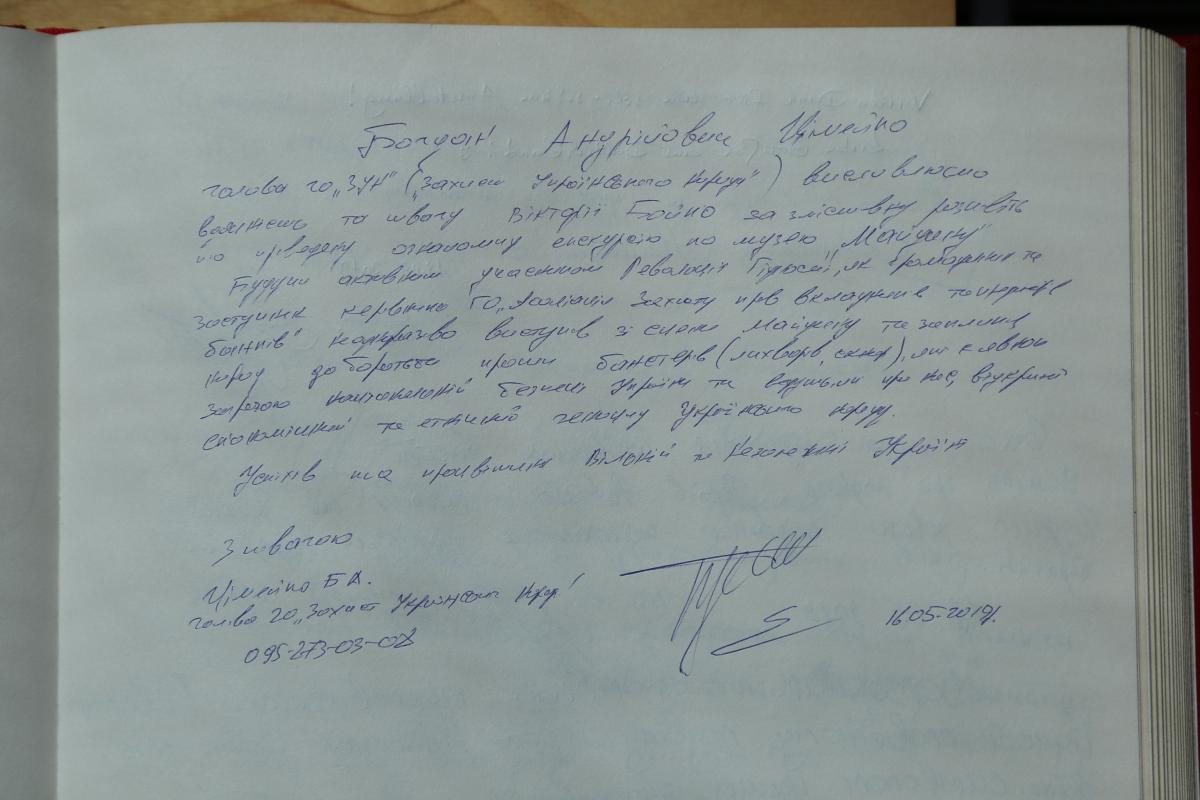 Богдан Андрійович Цімейко
голова ГО „ЗУН" („Захист Українського Народу") висловлюємо
та увагу Вікторії Бойко за змістовну розповідь
проведену ознайомчу екскурсію по музею „Майдану"
Будучи активним учасником Революції Гідності, як громадянин та
заступник керівника ГО „Асоціація Захисту прав вкладників та інвесторів
банків" неодноразово виступив зі сцени Майдану та закликав
народ до боротьби проти банкстерів (лихварів, ), які є явною
загрозою національній безпеці України та відкритий
економічний та етнічний геноцид Українського народу.
Успіхів та процвітання Вільній та Незалежній Україні
З повагою
Цімейко Б А.
голова ГО „Захист Українського Народу"
095-273-03-02
16.05.2019р.